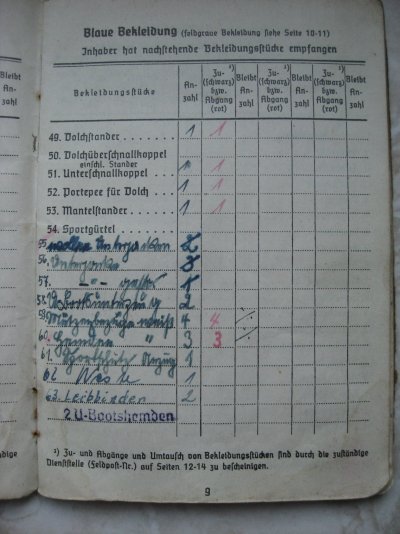 Blaue Bekleidung (feldgraue Bekleidung siehe Seite 10-11)
Inhaber hat nachstehende Bekleidungsstücke empfangen
Bekleidungsstücke An-zahl Zu-¹) (schwarz) bzw. Abgang (rot) Bleibt An-zahl Zu-¹) (schwarz) bzw. Abgang (rot) Bleibt An-zahl Zu-¹) (schwarz) bzw. Abgang (rot) Bleibt An-zahl
49. Dolchstander . . . . . . 1 1
50. Dolchüberschnallkoppel
einschl. Stander
51. Unterschnallkoppel . . . . 1 1
52. Portepee für Dolch . . . . 1 1
53. Mantelstander . . . . . . 1 1
54. Sportgürtel
55. Unterjacken 2
56. Unterjacke
57. -"-
58. 2
59. Mützenbezüge weiß 4 4
60. Hemden " 3 3
61. Anzug 1
62 Weste 1
63. Leibbinden 2
2 U-Bootshemden
¹) Zu- und Abgänge und Umtausch von Bekleidungsstücken sind durch die zuständige
Dienststelle (Feldpost-Nr.) auf Seiten 12-14 zu bescheinigen.
9